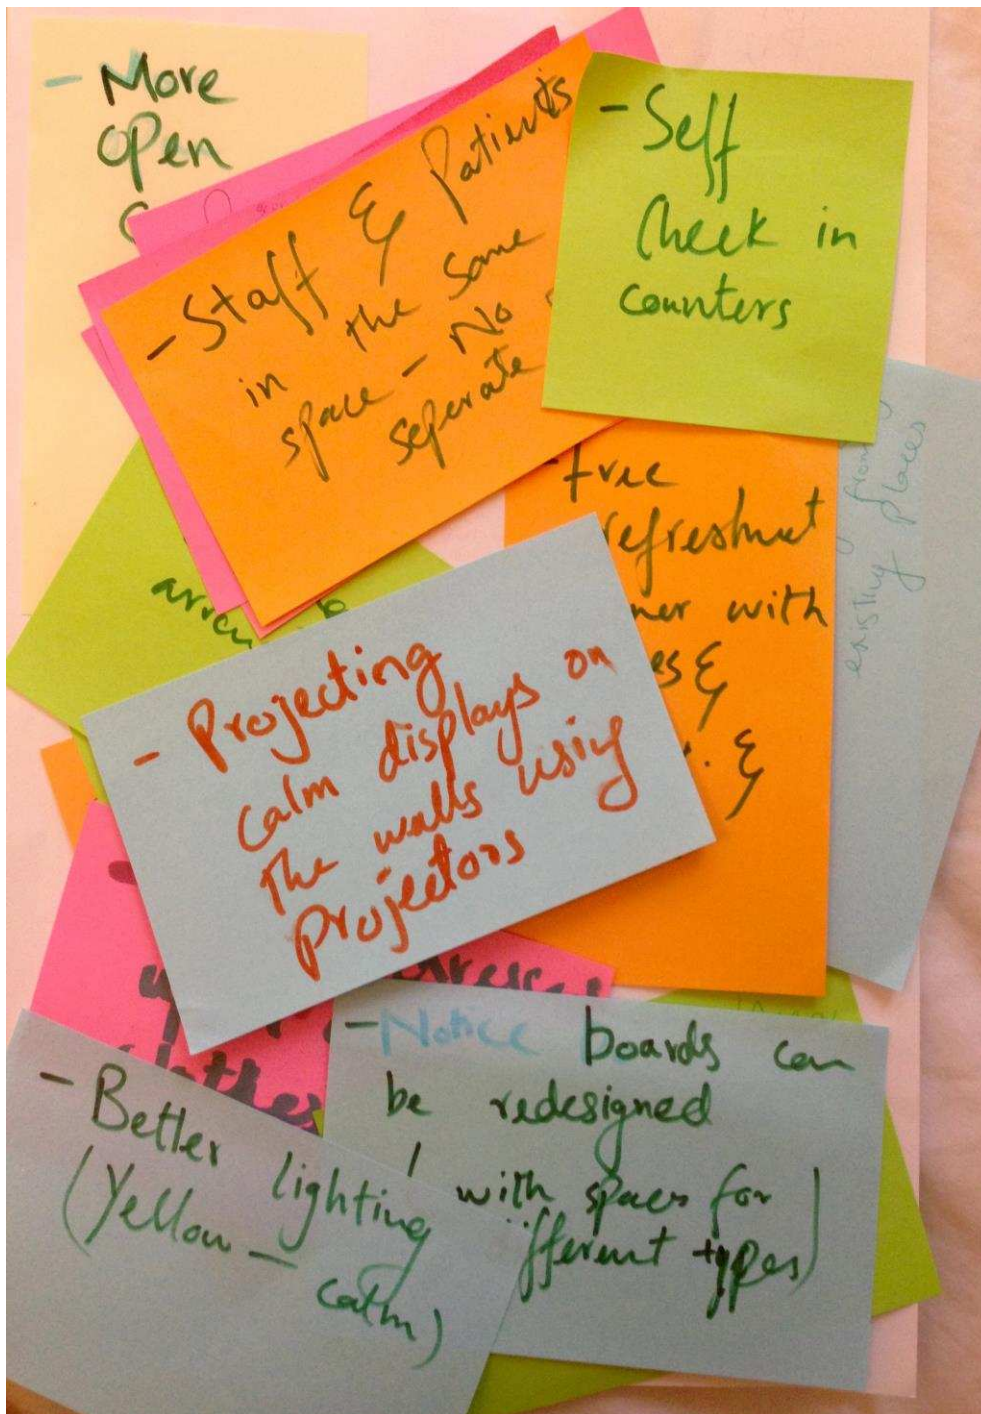 - More
open
- Staff & Patients
in the same
space - No
seperate
- Self
Check in
counters
- free
refreshmut
with
&
&
from
existing places
- Projecting
calm displays on
the walls using
projectors
- Notice boards can
be redesigned
with spaces for
types)
- Better lighting
(Yellow -
calm)